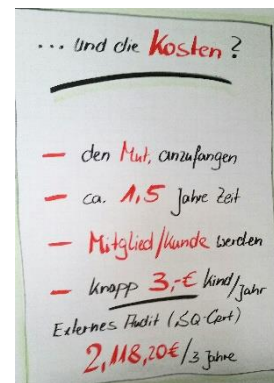 ... und die Kosten?
– den Mut, anzufangen
– ca. 1,5 Jahre Zeit
– Mitglied/Kunde werden
– knapp 3,-€ Kind/Jahr
Externes Audit (SQ-Cert)
2,118,20€/3 Jahre